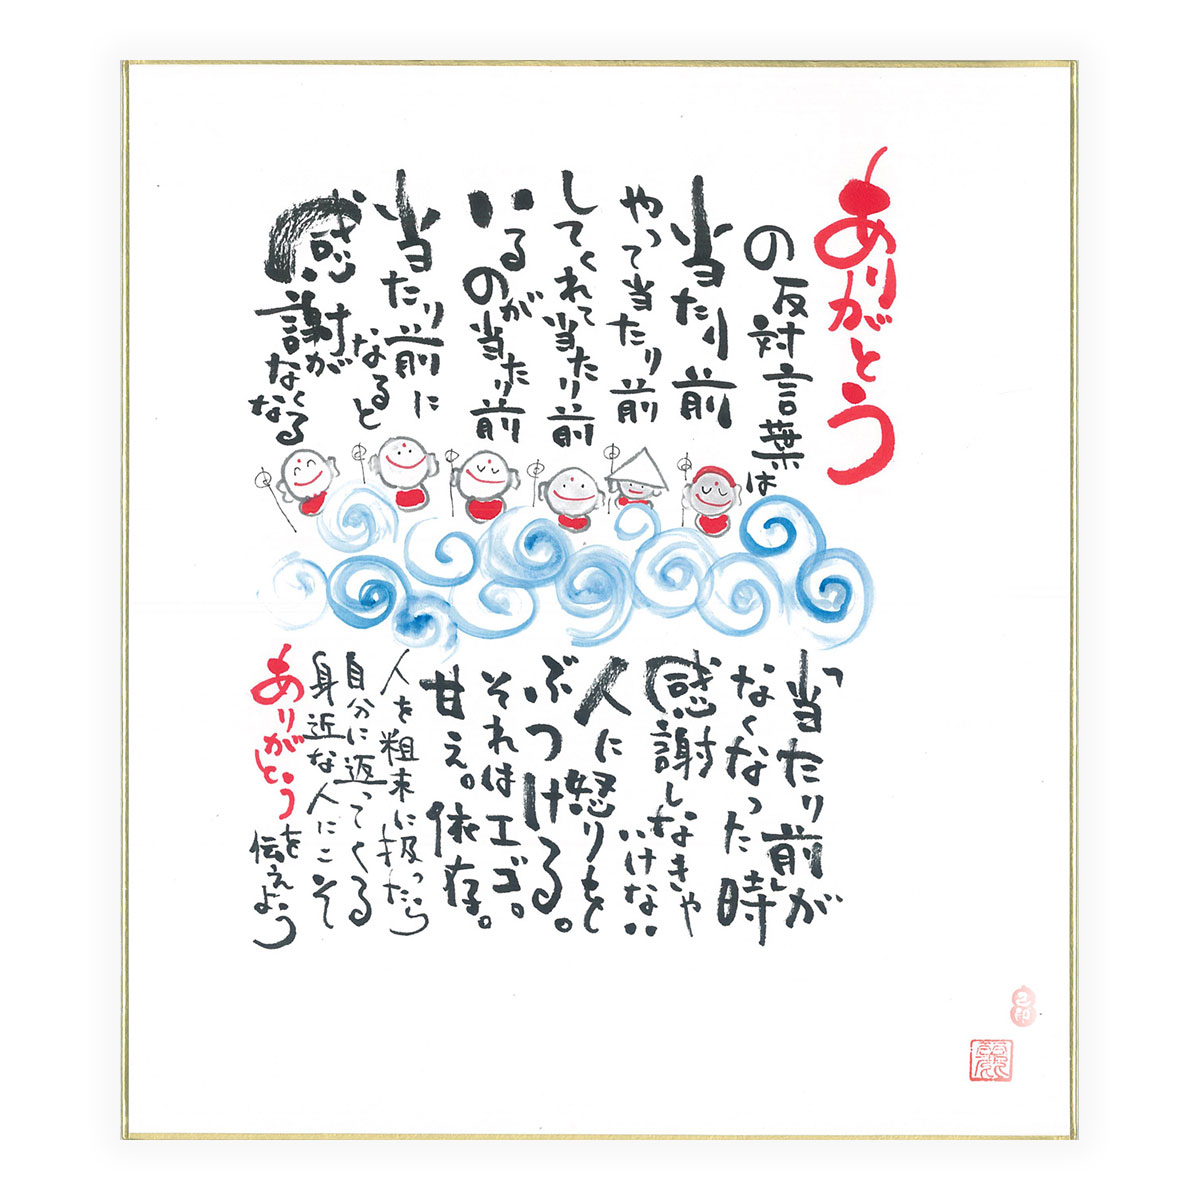 ありがとう
の反対言葉は
当たり前
やって当たり前
してくれて当たり前
いるのが当たり前
当たり前に
なると
感謝が
なくなる
当たり前が
なくなった時
感謝しなきゃ
いけない
人に怒りを
ぶつける。
それはエゴ。
甘え。依存。
人を粗末に扱ったら
自分に返ってくる
身近な人にこそ
ありがとうを
伝えよう